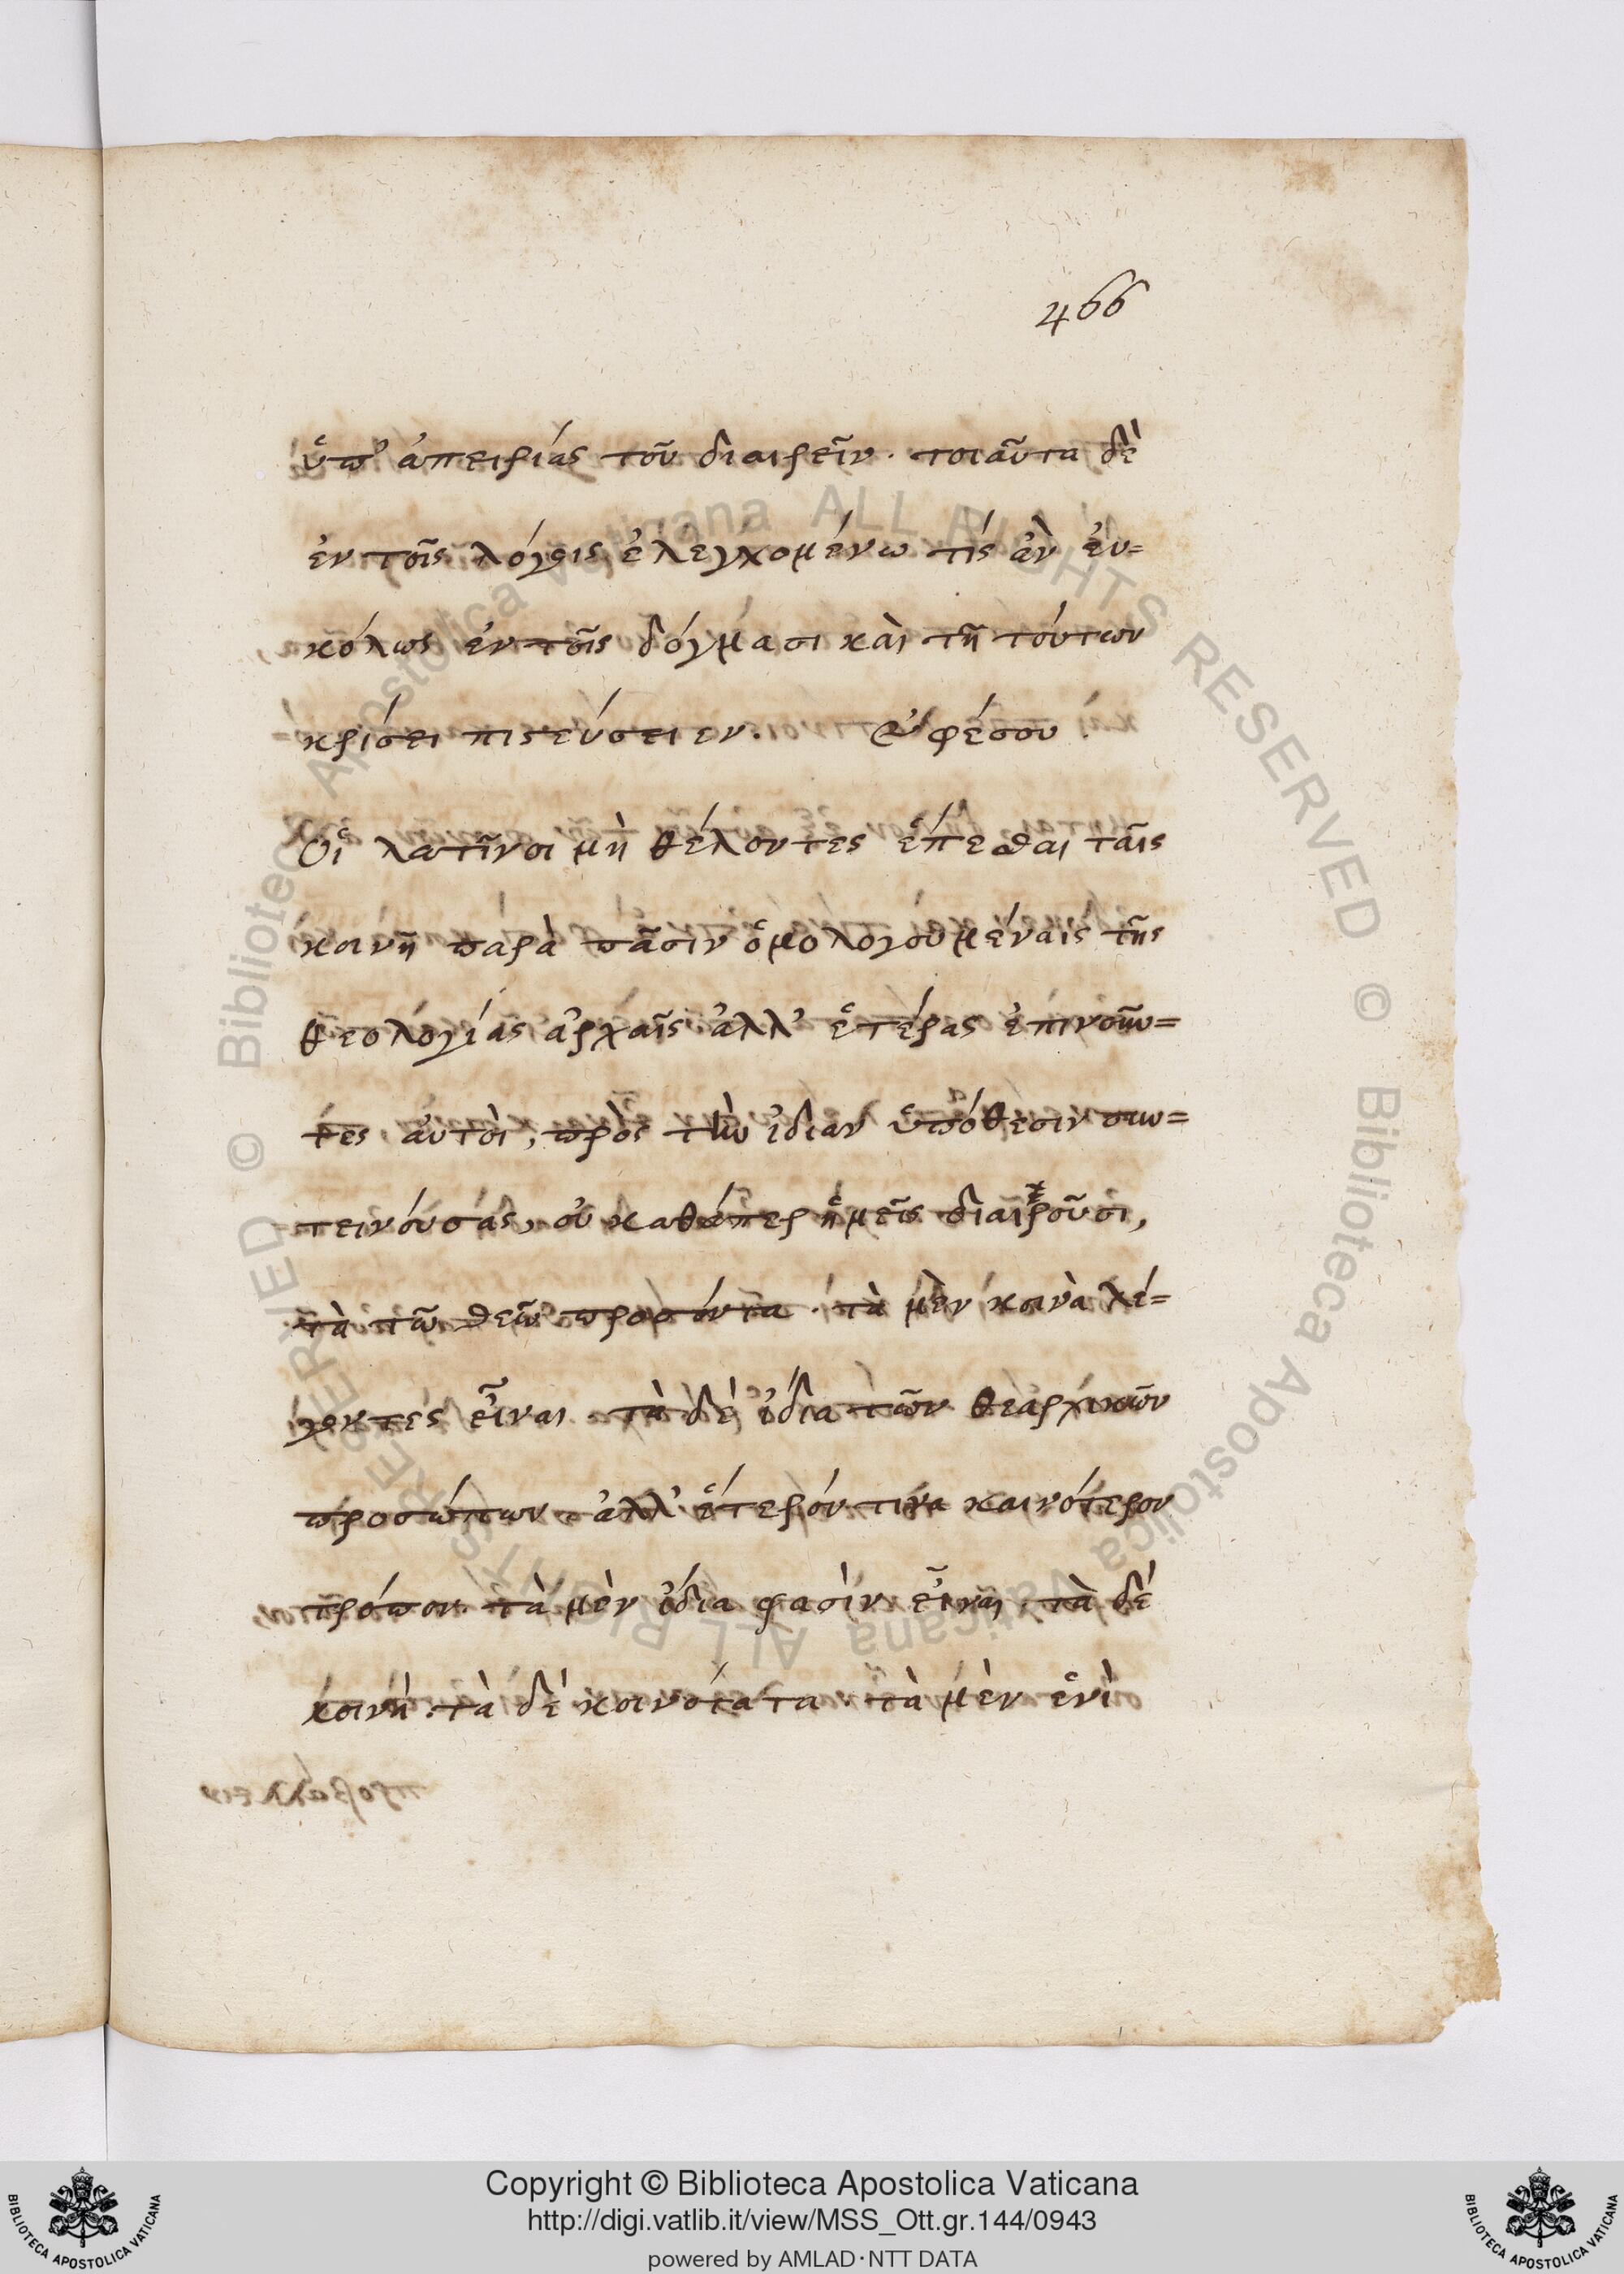 466
ὑπ' ἀπειρίας τοῦ διαιρεῖν. τοιαῦτα δὲ
ἐν τοῖς λόγοις ἐλεγχομένω τίς ἂν ἐυ=
κόλως ἐν τοῖς δόγμασι καὶ τῆ τούτων
κρίσει πιστεύσειεν. Ἐφέσου
Οἱ λατῖνοι μὴ θέλοντες ἕπεσθαι ταῖς
κοινῆ παρὰ πᾶσιν ὁμολογουμέναις τῆς
θεολογίας ἀρχαῖς ἀλλ' ἑτέρας ἐπινοοῦν=
τες ἀυτοὶ, πρὸς τὴν ἰδίαν ὑπόθεσιν συν=
τεινόυσας, οὐ καθάπερ ἡμεῖς διαιροῦσι,
τὰ τῶ θεῶ προσόντα. τὰ μὲν κοινὰ λέ=
γοντες εἶναι τὰ δὲ ἰδία τῶν θεαρχικῶν
προσώπων ἀλλ' ἕτερόν τινα καινότερον
τρόπον τὰ μὲν ἰδία φασὶν εἶναι, τὰ δὲ
κοινὴ. τὰ δὲ κοινότατα τὰ μὲν ἑνὶ
Copyright © Biblioteca Apostolica Vaticana
http://digi.vatlib.it/view/MSS_Ott.gr.144/0943
powered by AMLAD·NTT DATA